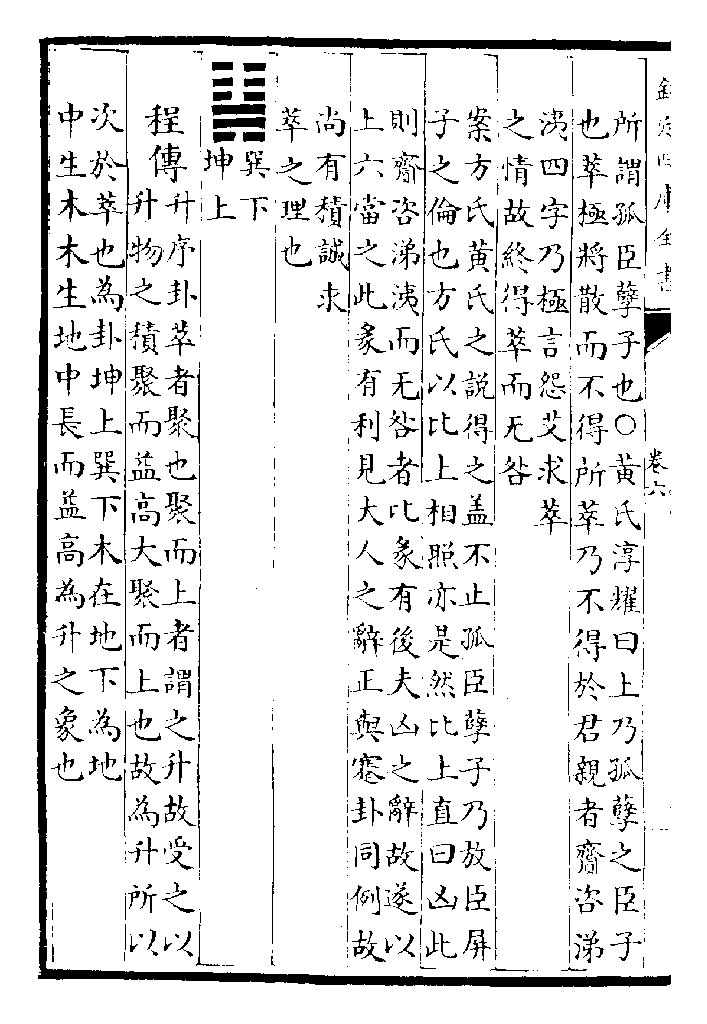 欽定四庫全書
卷六
所謂孤臣孽子也○黄氏淳耀曰上乃孤孽之臣子
也萃極將散而不得所萃乃不得於君親者齎咨涕
洟四字乃極言怨艾求萃
之情故終得萃而无咎
案方氏黄氏之説得之盖不止孤臣孽子乃放臣屏
子之倫也方氏以比上相照亦是然比上直曰凶此
則齎咨涕洟而无咎者比彖有後夫凶之辭故遂以
上六當之此彖有利見大人之辭正與蹇卦同例故
尚有積誠求
萃之理也
巽下
坤上
程傳升序卦萃者聚也聚而上者謂之升故受之以
升物之積聚而益高大聚而上也故為升所以
次於萃也為卦坤上巽下木在地下為地
中生木木生地中長而益高為升之象也